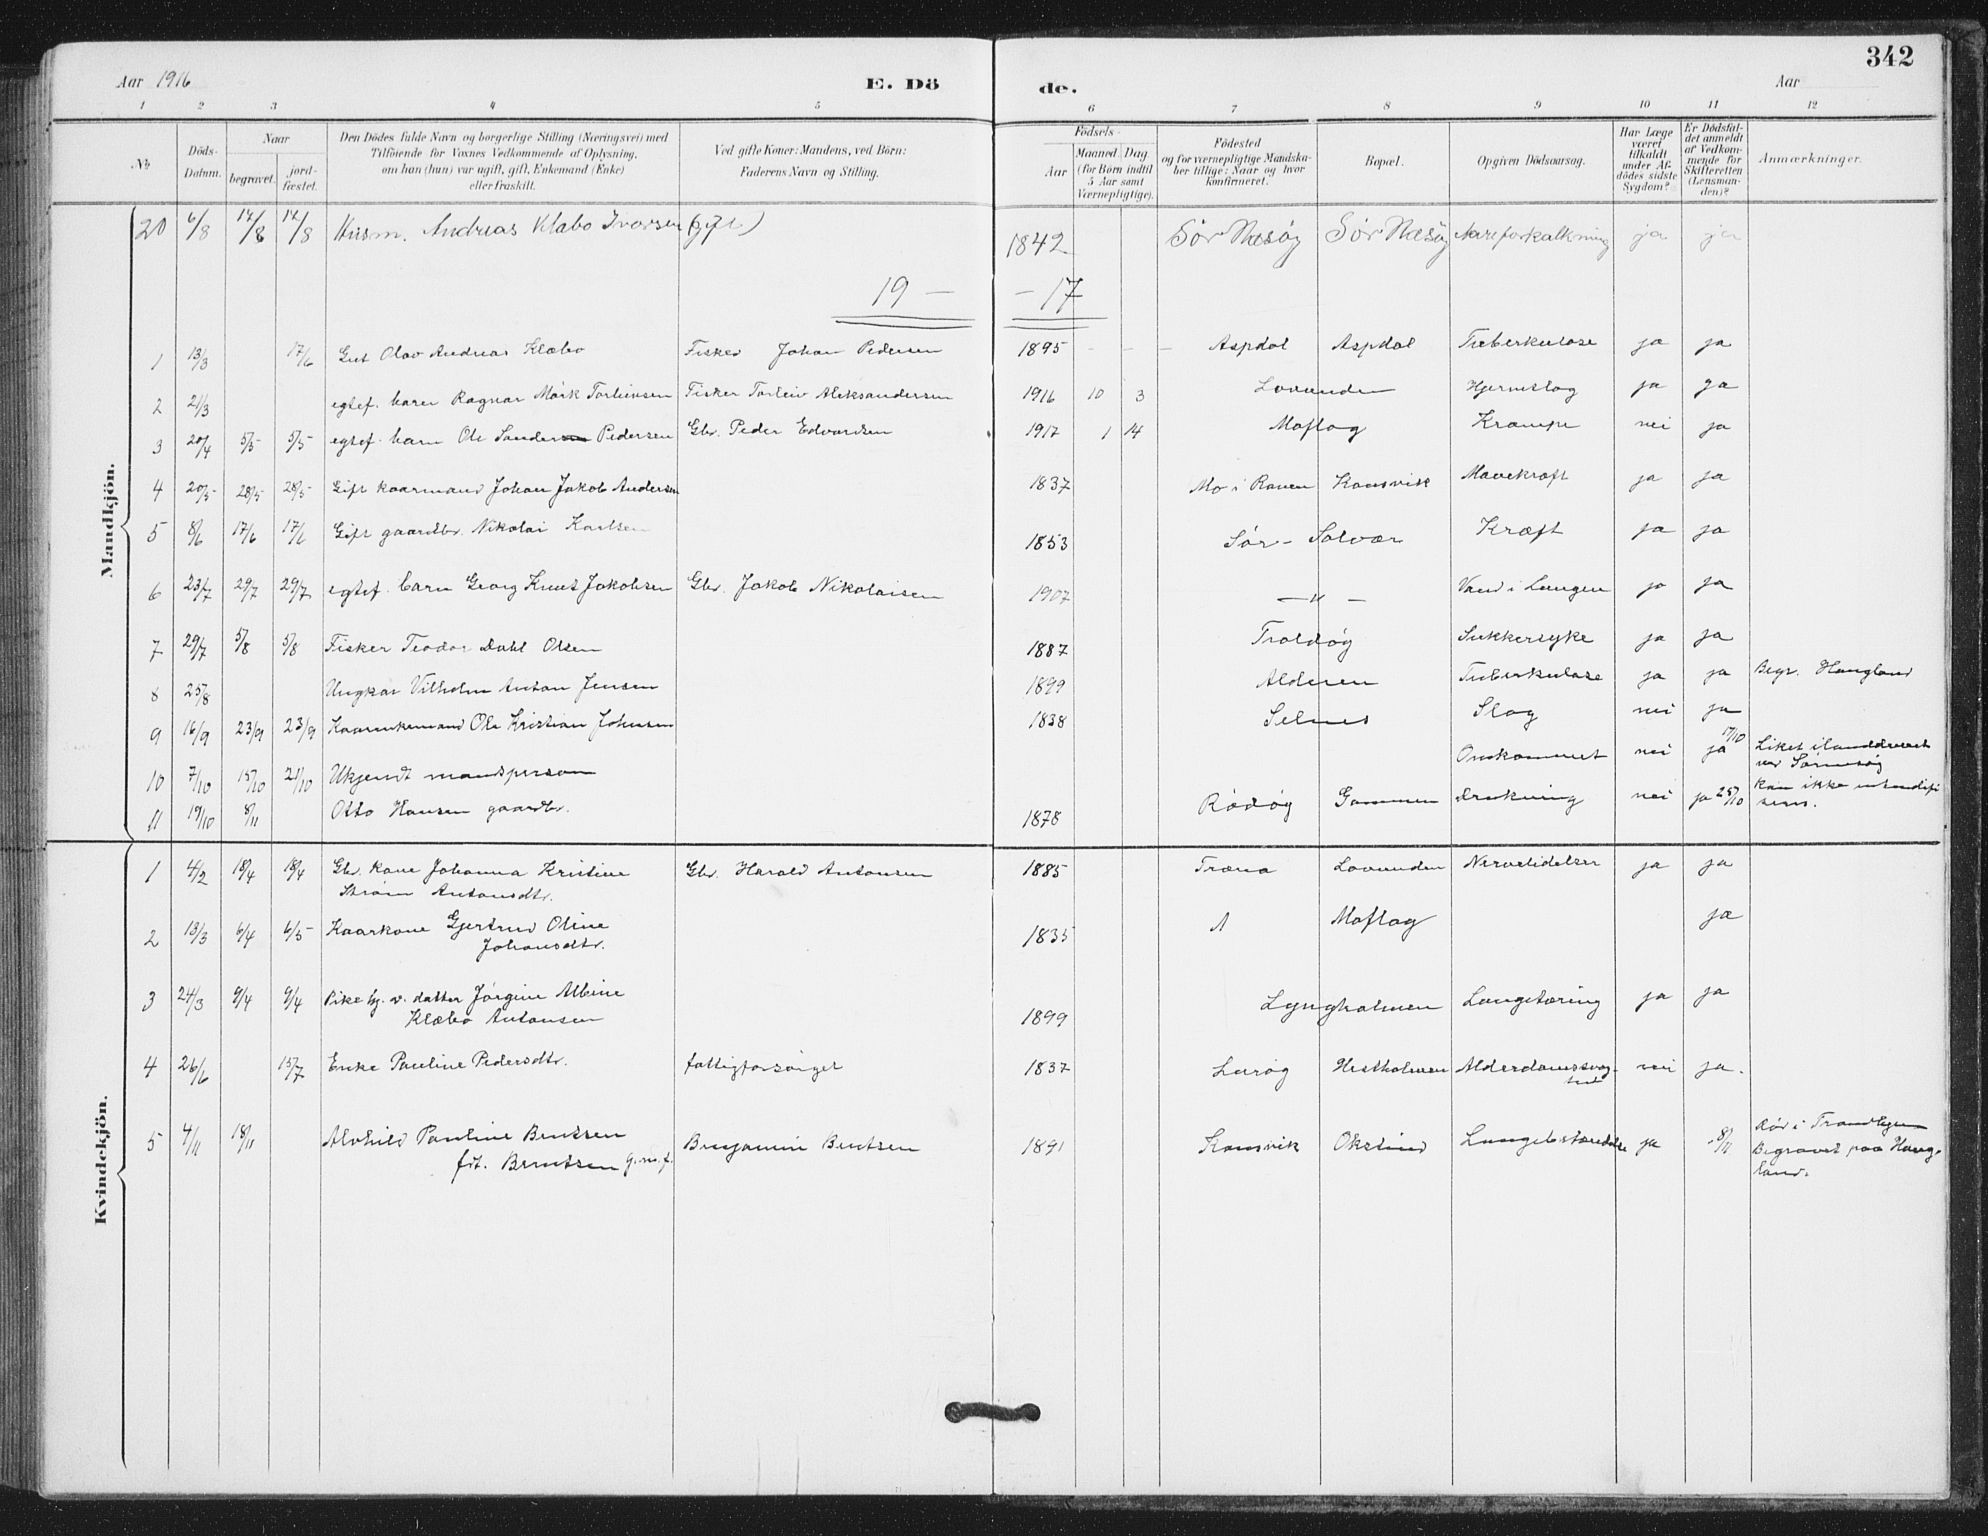 342
Aar 1916 E. Dö de. Aar
1 2 3 4 5 6 7 8 9 10 11 12
No.
Döds-Datum.
Naar
begravet.
jordfæstet.
Den Dödes fulde Navn og borgerlige Stilling (Næringsvei) med
Tilföiende for Voxnes Vedkommende af Oplysning,
om han (hun) var ugift, gift, Enkemand (Enke)
eller fraskilt.
Ved gifte Koner: Mandens, ved Börn:
Faderens Navn og Stilling.
Födsels-
Aar
Maaned Dag
(for Börn indtil
5 Aar samt
Værnepligtige).
Födested
og for værnepligtige Mandska-
ber tillige: Naar og hvor
konfirmeret.
Bopæl.
Opgiven Dödsaarsag.
Har Læge
været
tilkaldt
under Af-
dödes sidste
Sygdom?
Er Dödsfal-
det anmeldt
af Vedkom-
mende for
Skifteretten
(Lensman-
den)?
Anmærkninger.
Mandkjön.
20 6/8 12/8 12/8 Husm. Andreas Klæbo Ivarsen (gift) 1842 Sör Næsöy Sör Næsöy Aareforkalkning ja ja
19 — — 17
1 13/3 17/6 Gut Olav Andreas Klæbo Fisker Johan Pedersen 1895 - - - Aspdal Aspdal Tuberkulose ja ja
2 21/3 egtef. barn Ragnar Mörk Torleivsen Fisker Torleiv Aleksandersen 1916 10 3 Lovunden Hjerneslag ja ja
3 20/4 5/5 5/5 egtef. barn Ole Sander Pedersen Gbr. Peder Edvardsen 1917 1 14 Moflag Krampe nei ja
4 20/5 28/5 28/5 Gift kaarmand Johan Jakob Andersen 1837 Mo i Ranen Konsvik Mavekræft ja ja
5 8/6 17/6 17/6 Gift gaardbr. Nikolai Karlsen 1853 Sör-Solvær Kræft ja ja
6 23/7 29/7 29/7 egtef. barn Georg Knut Jakobsen Gbr. Jakob Nikolaisen 1907 — " — Vand i Lungen ja ja
7 29/7 5/8 5/8 Fisker Teodor Dahl Olsen 1887 Troldöy Sukkersyke ja ja
8 25/8 Ungkar Vilhelm Anton Jensen 1899 Alderen Tuberkulose ja ja Begr. Haugland
9 16/9 23/9 23/9 Kaarenkemand Ole Kristian Johnsen 1838 Selnes Slag nei ja
10 7/10 15/10 21/10 Ukjendt mandsperson Omkommet nei ja 17/10 Liket ilanddrevet
ved Sörnesöy
kan ikke
11 19/10 8/11 Otto Hansen gaardbr. 1878 Rödöy Gammen Drukning nei ja 25/10
Kvindekjön.
1 4/2 18/4 18/4 Gbr. kone Johanna Kristine Gbr. Harald Antonsen 1885 Træna Lovunden Nervelidelser ja ja
Ström Antonsdtr.
2 13/3 6/4 6/5 Kaarkone Gjertrud Oline 1835 Moflag ja
Johansdtr.
3 24/3 9/4 9/4 Pike hj. v. datter Jörgine Albine 1899 Lyngholmen Lungetæring ja ja
Klæbo Antonsen
4 26/6 15/7 Enke Pauline Pedersdtr. fattigforsörget 1837 Luröy Hestholmen Alderdomssvag-
het nei ja.
5 4/11 18/11 Alvhild Pauline Bentsen Benjamin Bentsen 1891 Konsvik Okstind ja 8/11 Död i
fdt. Berntsen g.m.f. Begravet paa Haug-
land.